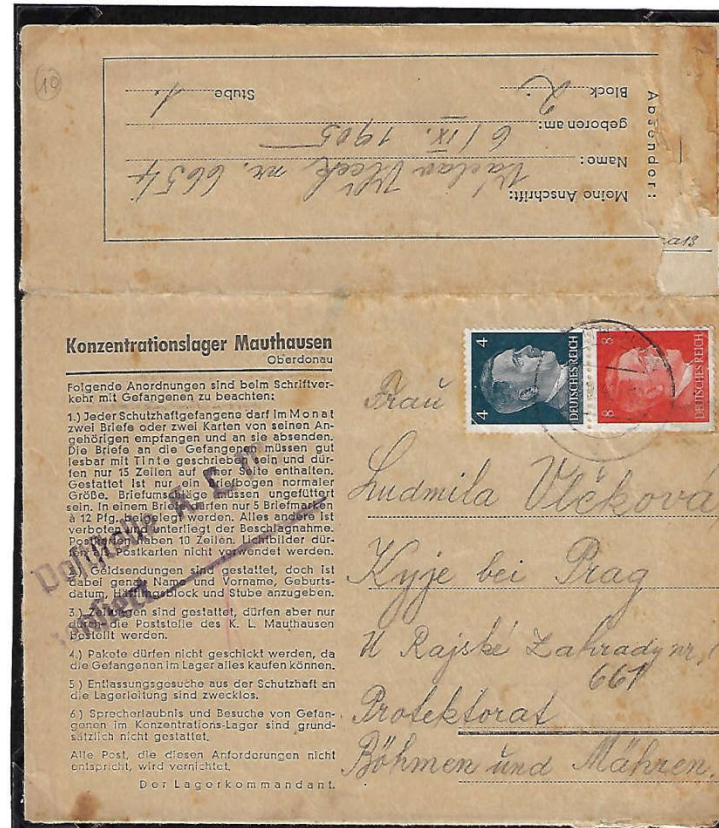 10
Absender:
Meine Anschrift:
Name: Václav Vlček, nr. 6654
geboren am: 6/IX. 1905
Block 2. Stube 1.
Konzentrationslager Mauthausen
Oberdonau
Folgende Anordnungen sind beim Schriftver-
kehr mit Gefangenen zu beachten:
1.) Jeder Schutzhaftgefangene darf im Monat
zwei Briefe oder zwei Karten von seinen An-
gehörigen empfangen und an sie absenden.
Die Briefe an die Gefangenen müssen gut
lesbar mit Tinte geschrieben sein und dür-
fen nur 15 Zeilen auf einer Seite enthalten.
Gestattet ist nur ein Briefbogen normaler
Größe. Briefumschläge müssen ungefüttert
sein. In einem Briefe dürfen nur 5 Briefmarken
à 12 Pfg. beigelegt werden. Alles andere ist
verboten und unterliegt der Beschlagnahme.
Postkarten haben 10 Zeilen. Lichtbilder dür-
fen als Postkarten nicht verwendet werden.
2.) Geldsendungen sind gestattet, doch ist
dabei genau Name und Vorname, Geburts-
datum, Häftlingsblock und Stube anzugeben.
3.) Zeitungen sind gestattet, dürfen aber nur
durch die Poststelle des K. L. Mauthausen
bestellt werden.
4.) Pakete dürfen nicht geschickt werden, da
die Gefangenen im Lager alles kaufen können.
5.) Entlassungsgesuche aus der Schutzhaft an
die Lagerleitung sind zwecklos.
6.) Sprecherlaubnis und Besuche von Gefan-
genen im Konzentrations-Lager sind grund-
sätzlich nicht gestattet.
Alle Post, die diesen Anforderungen nicht
entspricht, wird vernichtet.
Der Lagerkommandant.
Poststelle K. L.
4 4 DEUTSCHES REICH
8 8 DEUTSCHES REICH
Frau
Ludmila Vlčková
Kyje bei Prag
U Rajské Zahrady nr.
661
Protektorat
Böhmen und Mähren.